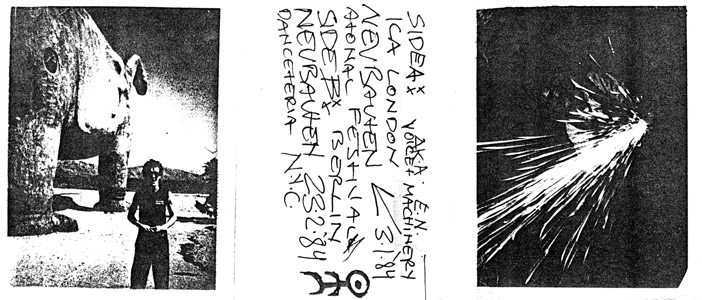 SIDEA: AKA. EN
VOICE + MACHINERY
ICA LONDON
NEUBAUTEN 3 1.84
ATONAL FESTIVAL
SIDE B: BERLIN
NEUBAUTEN 23 2:84
DANCETERIA NYC